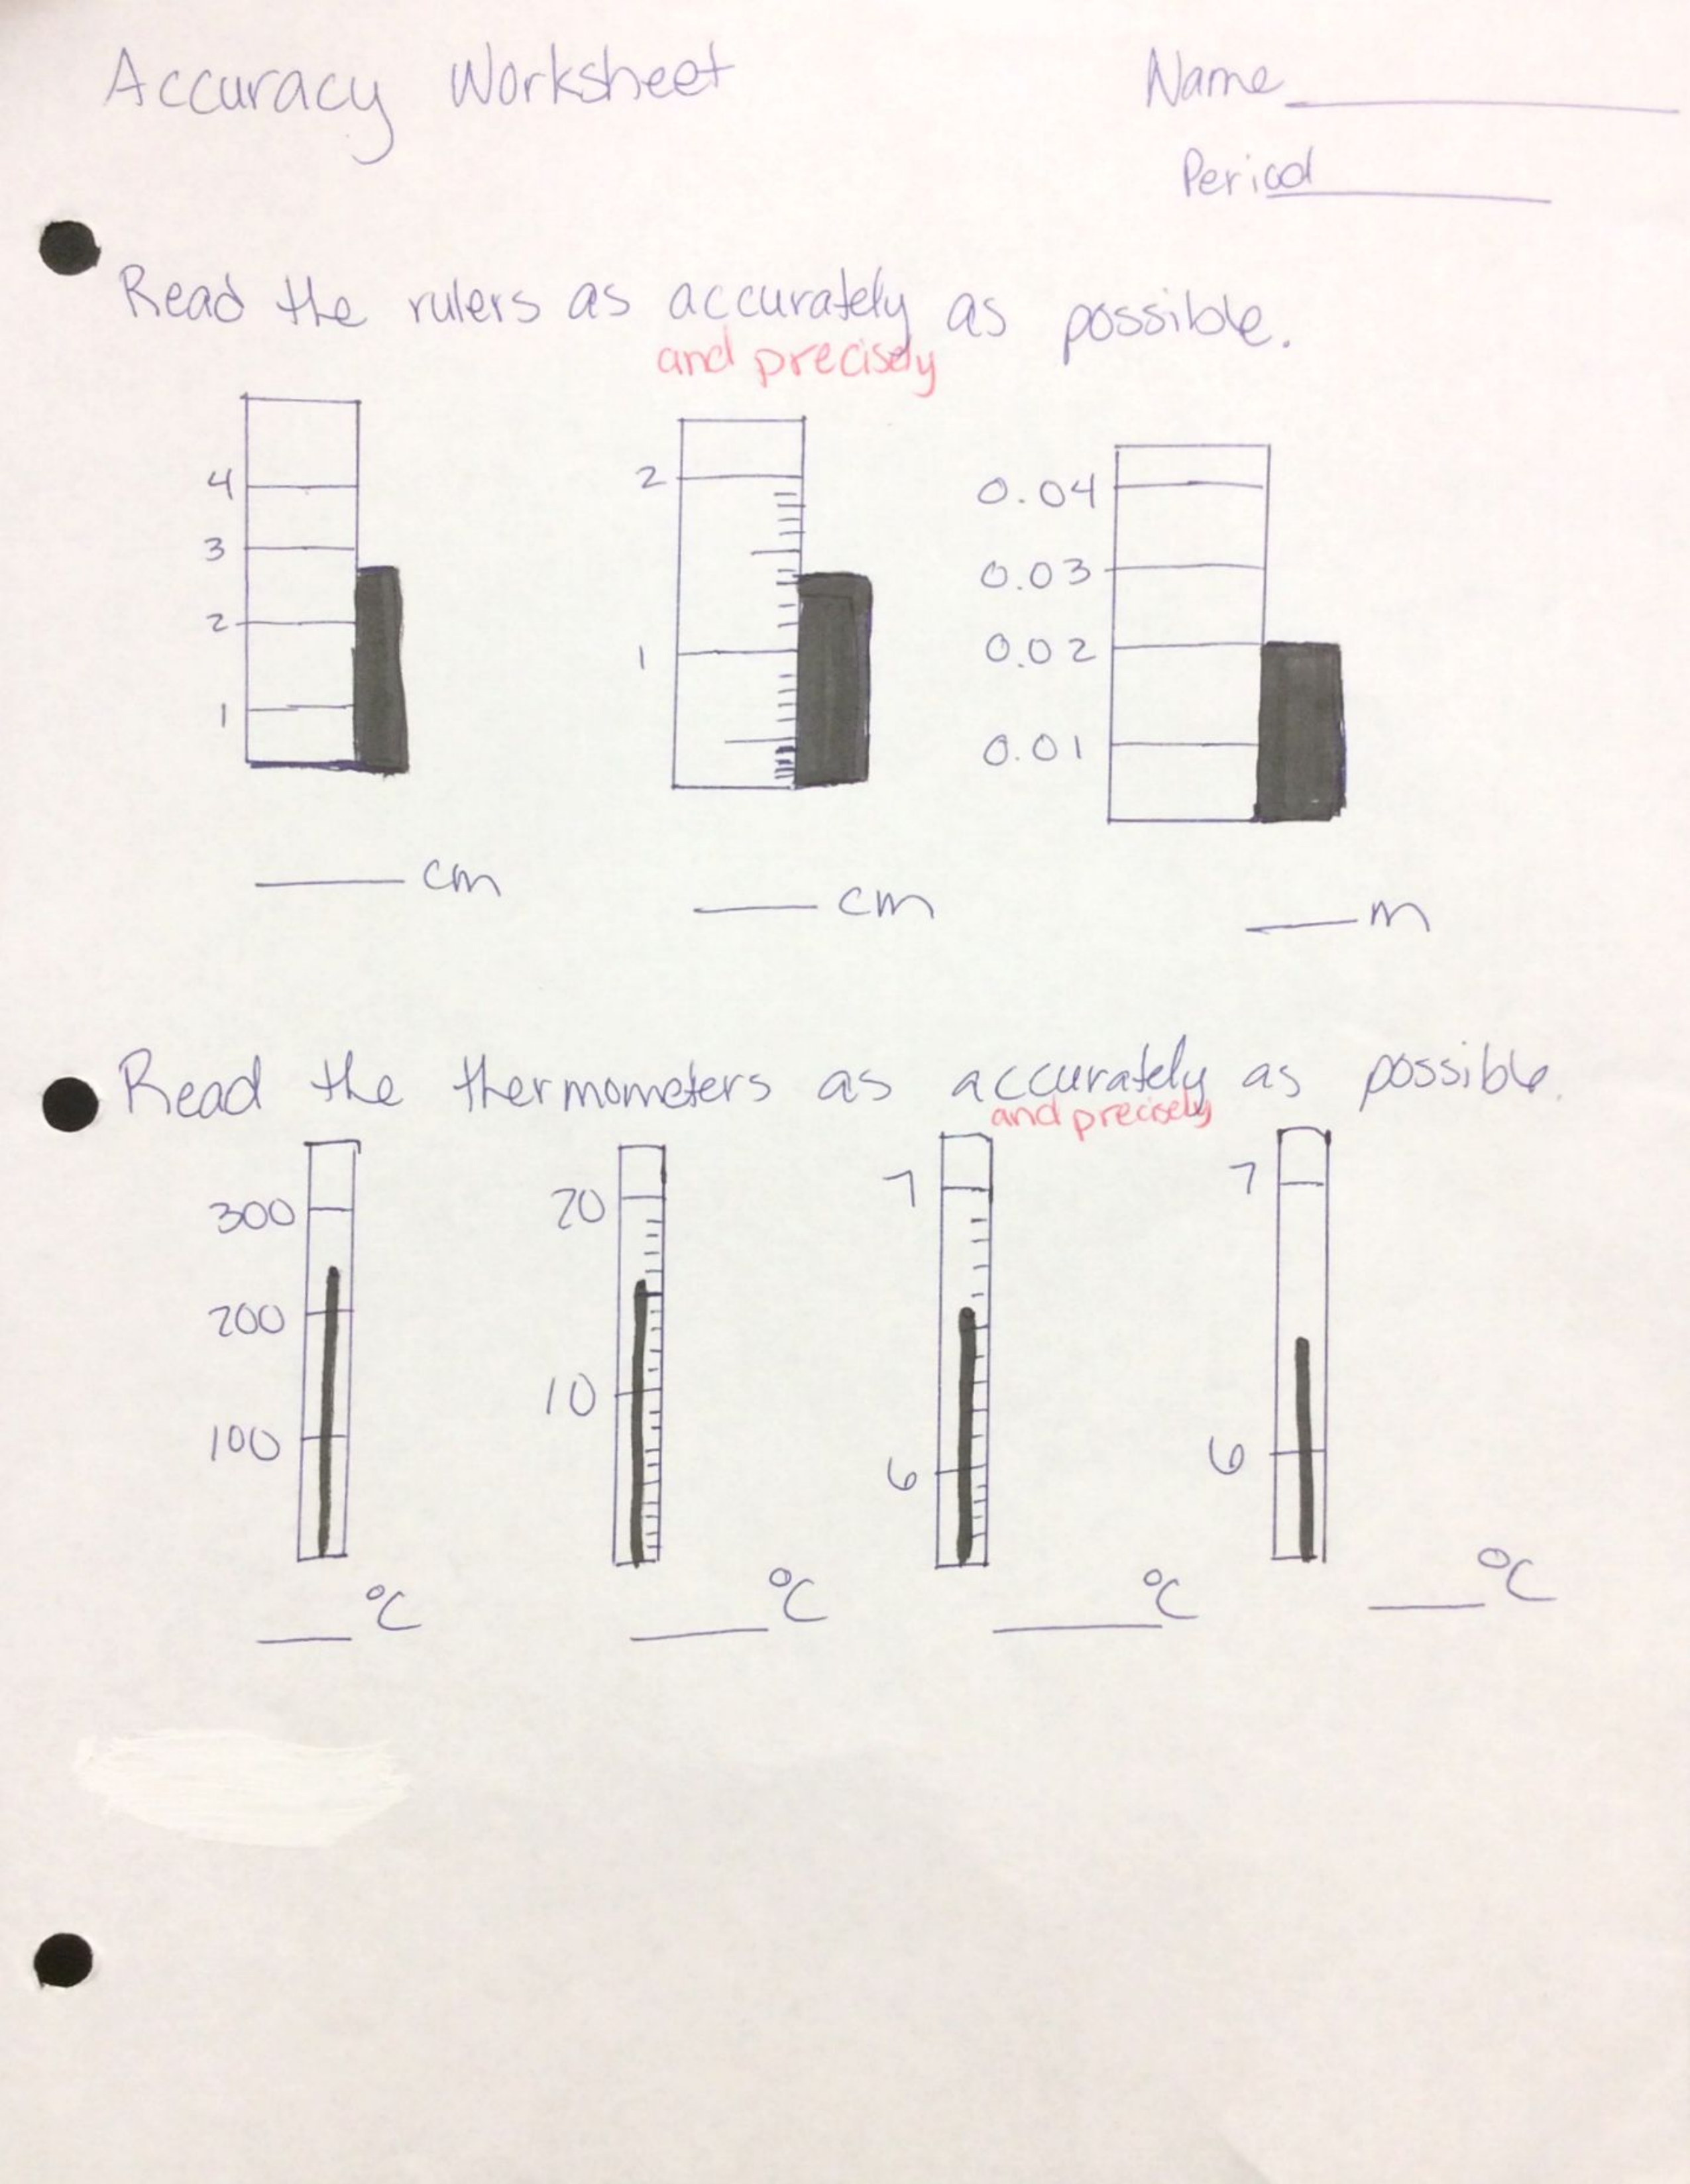 Accuracy Worksheet Name
Period
Read the rulers as accurately as possible.
and precisely
4
3
2
1
cm
2
1
cm
0.04
0.03
0.02
0.01
m
Read the thermometers as accurately as possible.
and precisely
300
200
100
°C
20
10
°C
7
6
°C
7
6
°C